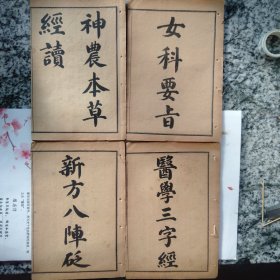 神農本草
經讀
女科要旨
新方八陣砭
醫學三字經